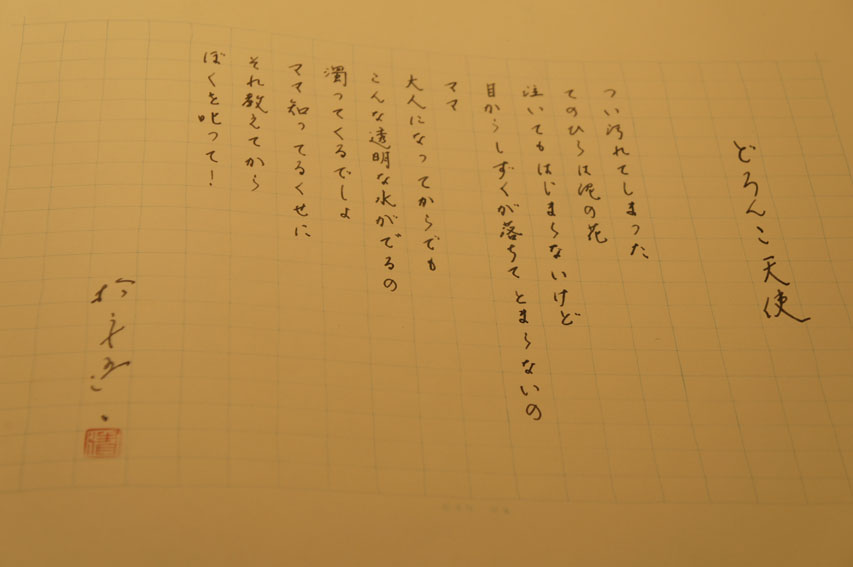 どろんこ天使
つい汚れてしまった
てのひらは泥の花
泣いてもはじまらないけど
目からしずくが落ちてとまらないの
ママ
大人になってからでも
こんな透明な水がでるの
濁ってくるでしょ
ママ知ってるくせに
それ教えてから
ぼくを叱って!